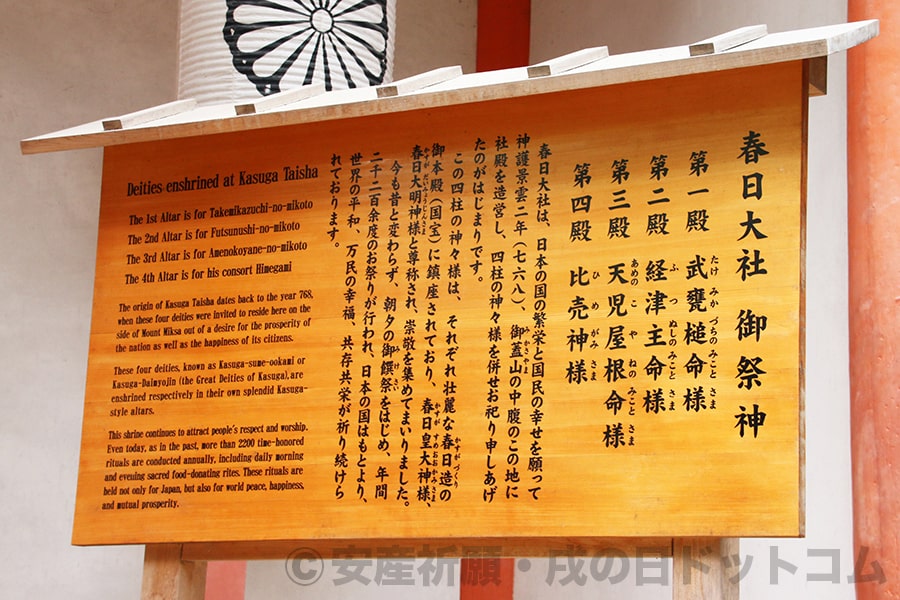 春日大社 御祭神
第一殿 武甕槌命様
たけみかづちのみことさま
第二殿 経津主命様
ふつぬしのみことさま
第三殿 天児屋根命様
あめのこやねのみことさま
第四殿 比売神様
ひめがみさま
春日大社は、日本の国の繁栄と国民の幸せを願って
神護景雲二年（七六八）、御蓋山の中腹のこの地に
みかさやま
社殿を造営し、四柱の神々様を併せお祀り申しあげ
たのがはじまりです。
この四柱の神々様は、それぞれ壮麗な春日造の
かすがづくり
御本殿（国宝）に鎮座されており、春日皇大神様、
かすがすめおおかみさま
春日大明神様と尊称され、崇敬を集めてまいりました。
かすがだいみょうじんさま
今も昔と変わらず、朝夕の御饌祭をはじめ、年間
みけさい
二千二百余度のお祭りが行われ、日本の国はもとより、
世界の平和、万民の幸福、共存共栄が祈り続けら
れております。
Deities enshrined at Kasuga Taisha
The 1st Altar is for Takemikazuchi-no-mikoto
The 2nd Altar is for Futsunushi-no-mikoto
The 3rd Altar is for Amenokoyane-no-mikoto
The 4th Altar is for his consort Himegami
The origin of Kasuga Taisha dates back to the year 768,
when these four deities were invited to reside here on the
side of Mount Miksa out of a desire for the prosperity of
the nation as well as the happiness of its citizens.
These four deities, known as Kasuga-sume-ookami or
Kasuga-Daimyojin (the Great Deities of Kasuga),are
enshrined respectively in their own splendid Kasuga-
style altars.
This shrine continues to attract people's respect and worship.
Even today, as in the past, more than 2200 time-honored
rituals are conducted annually, including daily morning
and evening sacred food-donating rites. These rituals are
held not only for Japan, but also for world peace, happiness,
and mutual prosperity.
©安産祈願・戌の日ドットコム